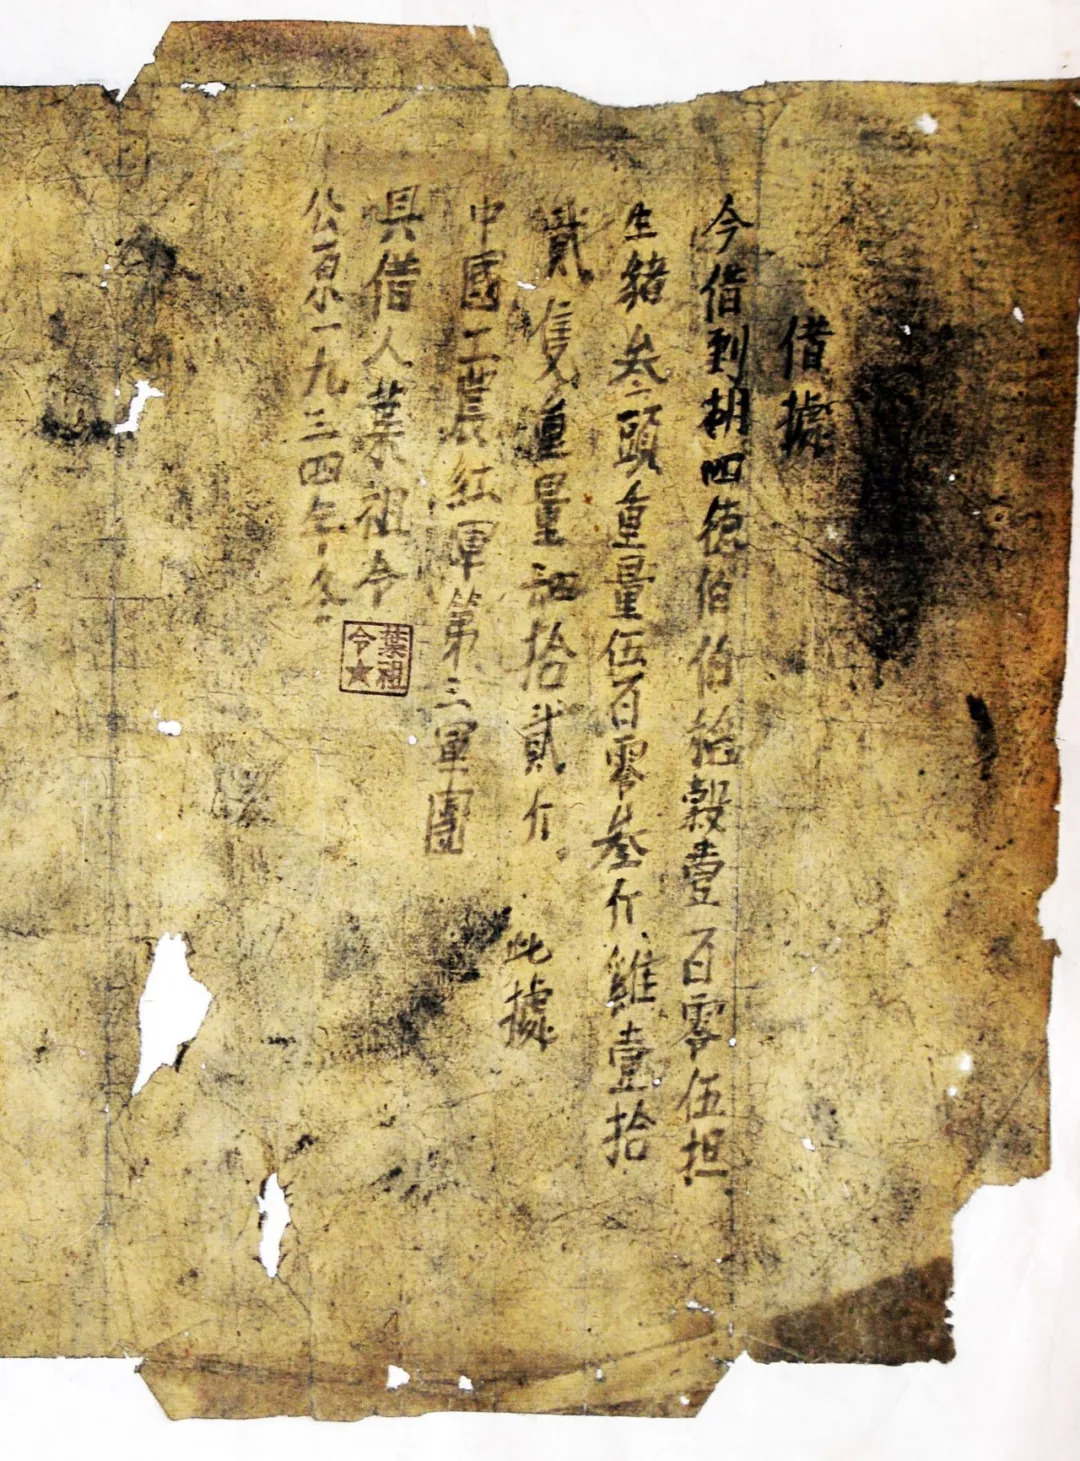 借據
今借到胡四德伯伯稻穀壹百零伍担
生豬叁頭重量伍百零叁斤雞壹拾
貳隻重量肆拾貳斤。此據
中國工農紅軍第三軍團
具借人葉祖令
公曆一九三四年冬
葉祖
令★